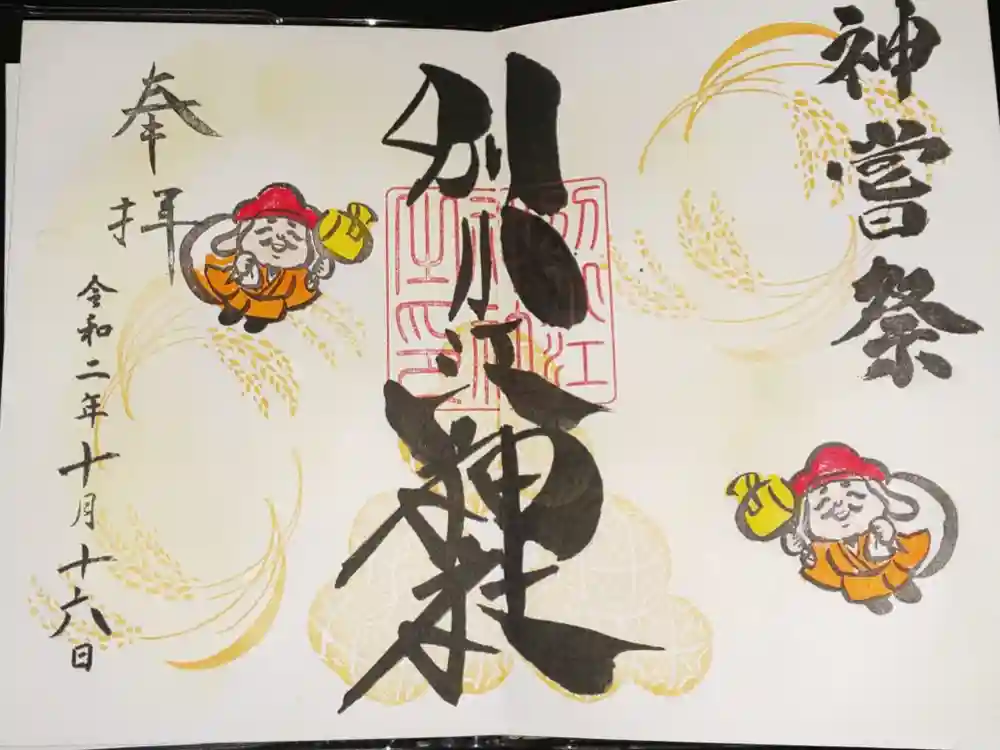 神嘗祭
別小江神社
別小江
神社
之印
奉拝
令和二年十月十六日